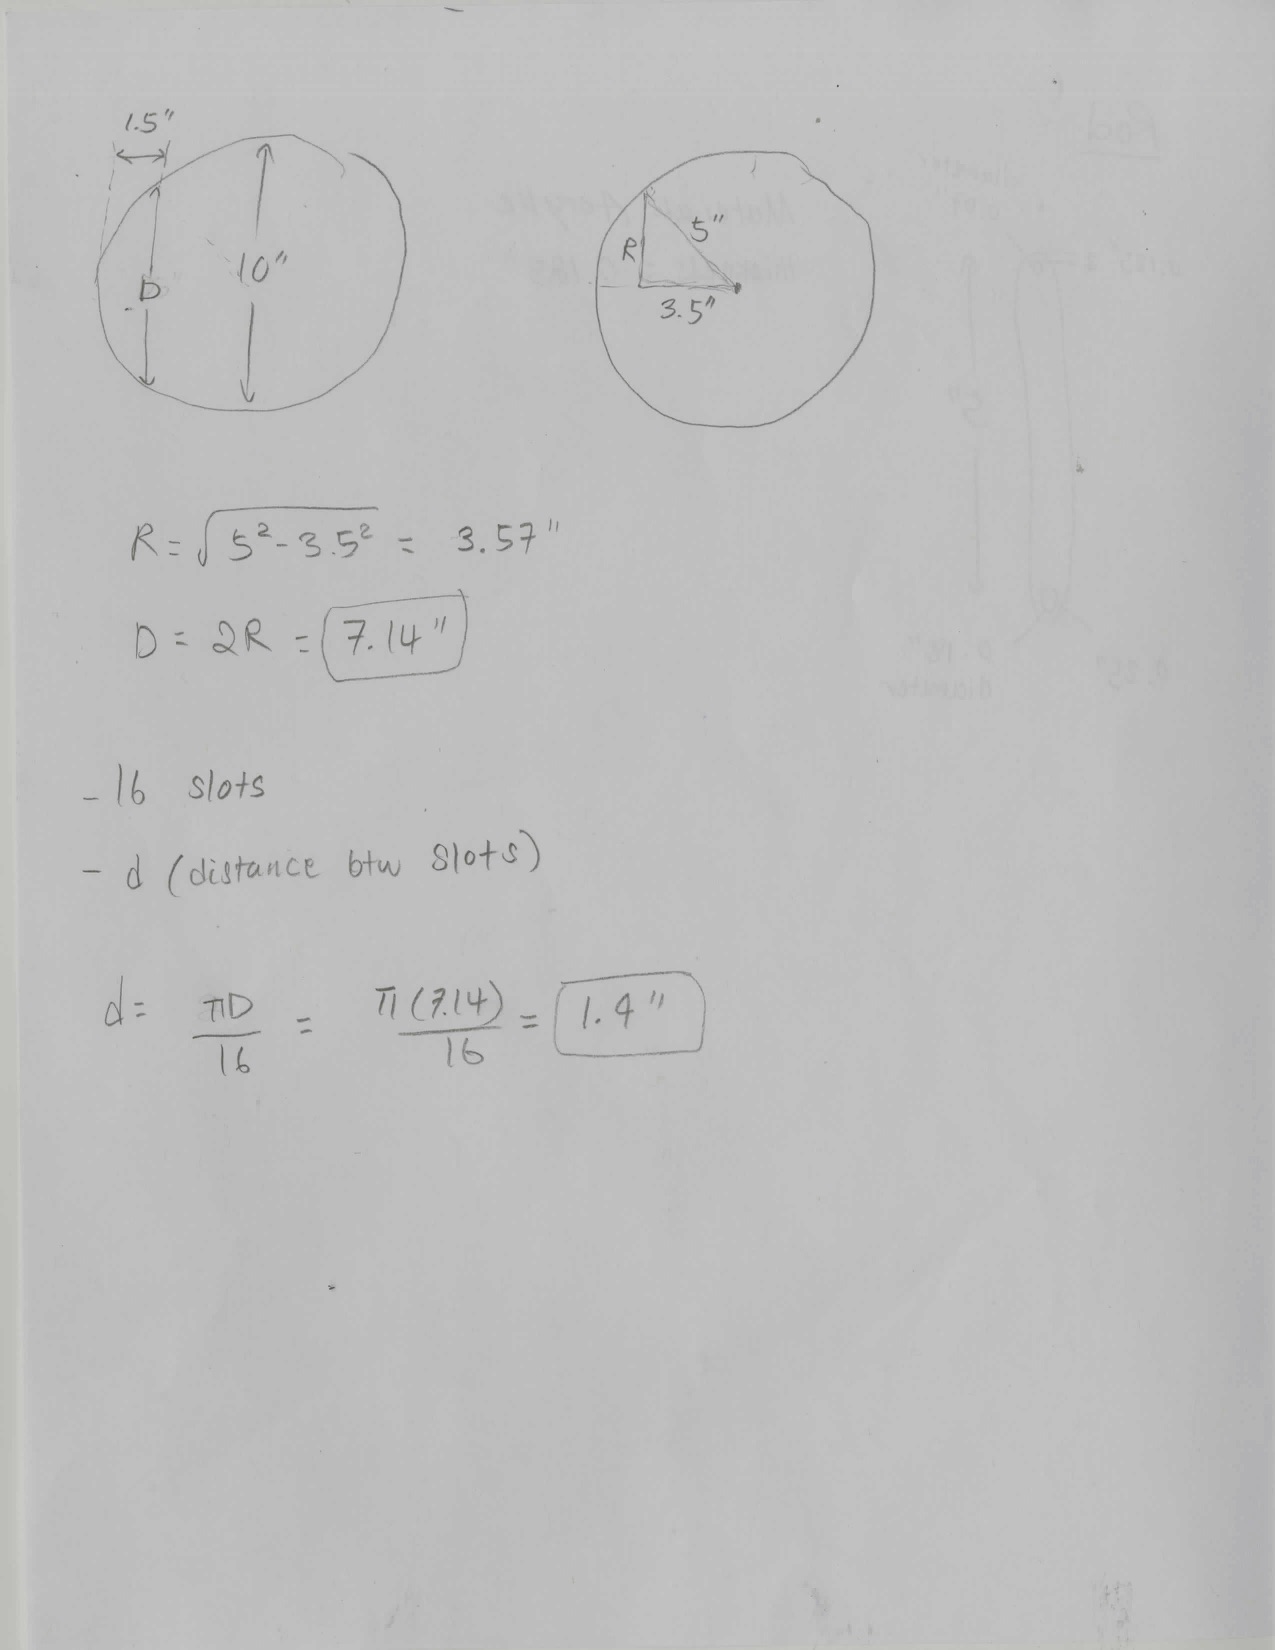 1.5"
D
10"
R
5"
3.5"
R = √5² - 3.5² = 3.57"
D = 2R = 7.14"
- 16 slots
- d (distance btw slots)
d = πD/16 = π(7.14)/16 = 1.4"